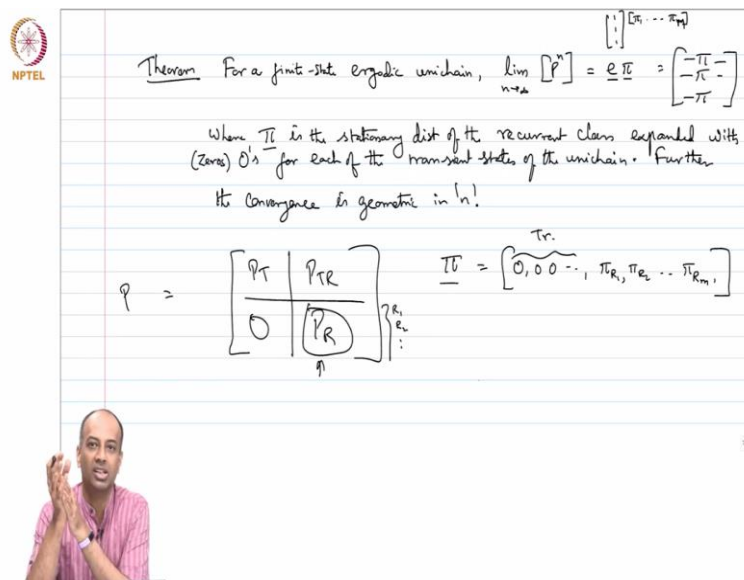 [⋮] [π₁ ... πₘ]
NPTEL
Theorem For a finite-state ergodic unichain, lim n→∞ [Pⁿ] = e π = [-π- -π- -π]
where π is the stationary dist of the recurrent class expanded with
(Zeros) 0's for each of the transient states of the unichain. Further
the convergence is geometric in 'n'.
Tr.
P = [P_T | P_TR
0 | P_R] } R₁ R₂ ⋮
π = [0, 0 0 .., π_R₁, π_R₂ .. π_Rₘ,]